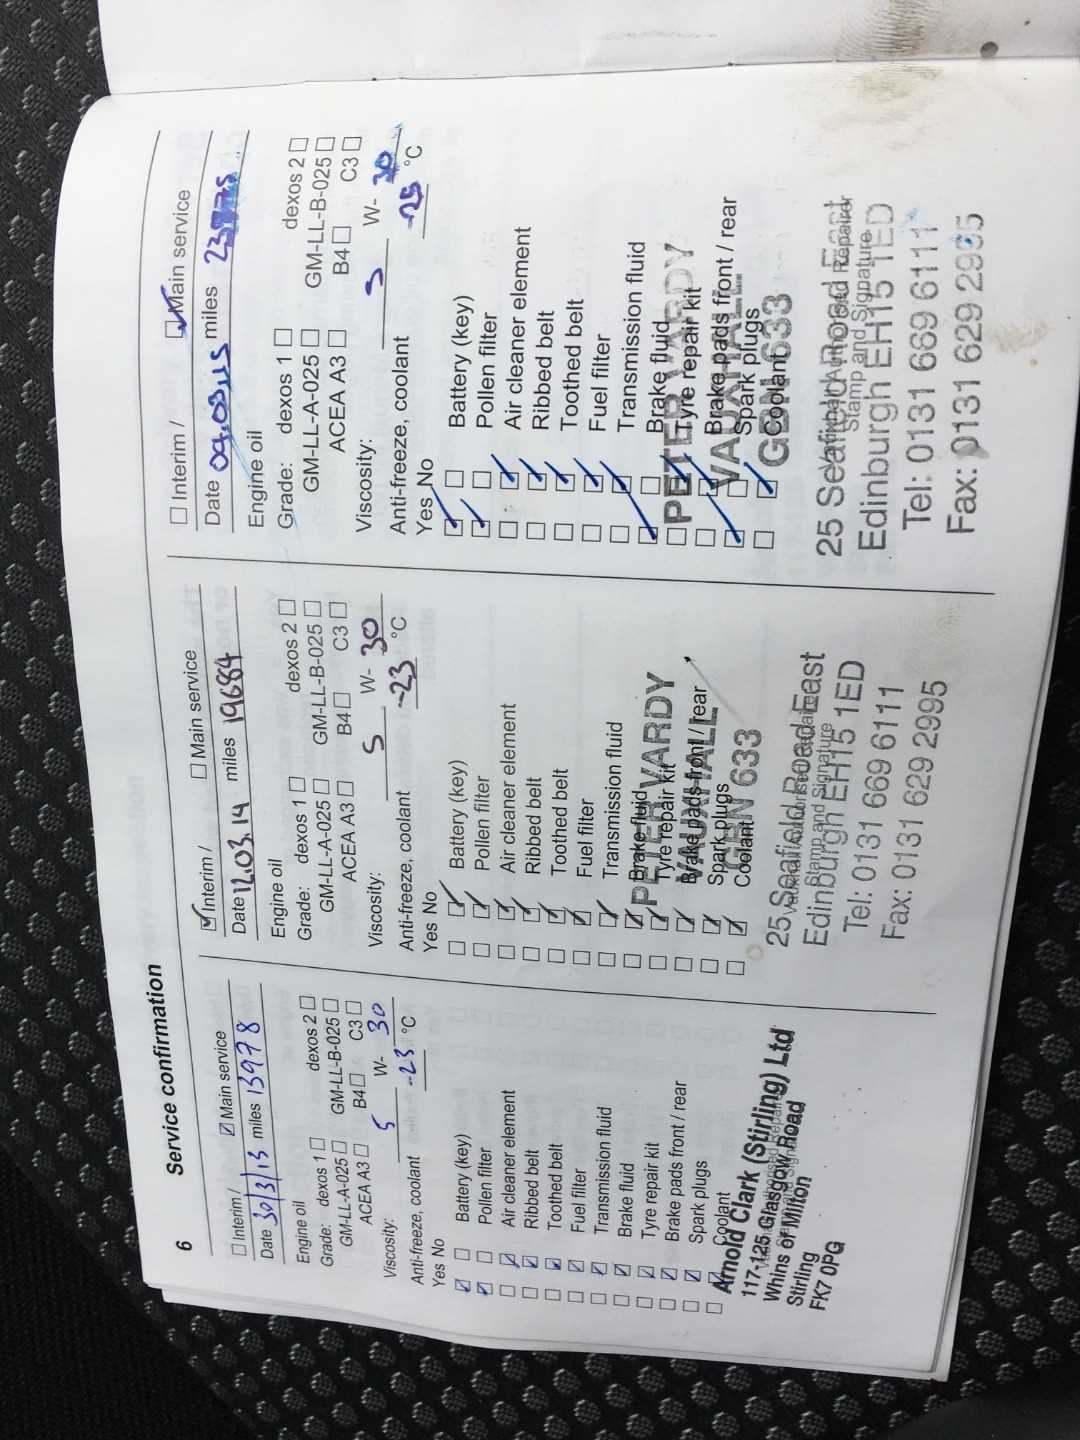 6 Service confirmation
☐ Interim / ☑ Main service
Date 30/3/13 miles 13978
Engine oil
Grade: dexos 1 ☐ dexos 2 ☐
GM-LL-A-025 ☐ GM-LL-B-025 ☐
ACEA A3 ☐ B4 ☐ C3 ☐
Viscosity: 5 W- 30
Anti-freeze, coolant -23 °C
Yes No
☑ ☐ Battery (key)
☑ ☐ Pollen filter
☐ ☑ Air cleaner element
☐ ☑ Ribbed belt
☐ ☑ Toothed belt
☐ ☑ Fuel filter
☐ ☑ Transmission fluid
☐ ☑ Brake fluid
☐ ☑ Tyre repair kit
☐ ☑ Brake pads front / rear
☐ ☑ Spark plugs
☐ ☑ Coolant
Arnold Clark (Stirling) Ltd
117-125 Glasgow Road
Whins of Milton
Stirling
FK7 0PG
☑ Interim / ☐ Main service
Date 12.03.14 miles 19684
Engine oil
Grade: dexos 1 ☐ dexos 2 ☐
GM-LL-A-025 ☐ GM-LL-B-025 ☐
ACEA A3 ☐ B4 ☐ C3 ☐
Viscosity: 5 W- 30
Anti-freeze, coolant -23 °C
Yes No
☐ ☑ Battery (key)
☐ ☑ Pollen filter
☐ ☑ Air cleaner element
☐ ☑ Ribbed belt
☐ ☑ Toothed belt
☐ ☑ Fuel filter
☐ ☑ Transmission fluid
☐ ☑ Brake fluid
☐ ☑ Tyre repair kit
☐ ☑ Brake pads front / rear
☐ ☑ Spark plugs
☐ ☑ Coolant
PETER VARDY
VAUXHALL
GBN 633
25 Seafield Road East
Stamp and Signature
Edinburgh EH15 1ED
Tel: 0131 669 6111
Fax: 0131 629 2995
☐ Interim / ☑ Main service
Date 09.03.15 miles
Engine oil
Grade: dexos 1 ☐ dexos 2 ☐
GM-LL-A-025 ☐ GM-LL-B-025 ☐
ACEA A3 ☐ B4 ☐ C3 ☐
Viscosity: 5 W- 30
Anti-freeze, coolant -25 °C
Yes No
☑ ☐ Battery (key)
☑ ☐ Pollen filter
☐ ☑ Air cleaner element
☐ ☑ Ribbed belt
☐ ☑ Toothed belt
☐ ☑ Fuel filter
☐ ☑ Transmission fluid
☑ ☐ Brake fluid
☐ ☑ Tyre repair kit
☐ ☑ Brake pads front / rear
☑ ☐ Spark plugs
☐ ☑ Coolant
PETER VARDY
VAUXHALL
GBN 633
25 Seafield Road East
Vauxhall Authorised Repairer
Stamp and Signature
Edinburgh EH15 1ED
Tel: 0131 669 6111
Fax: 0131 629 2995